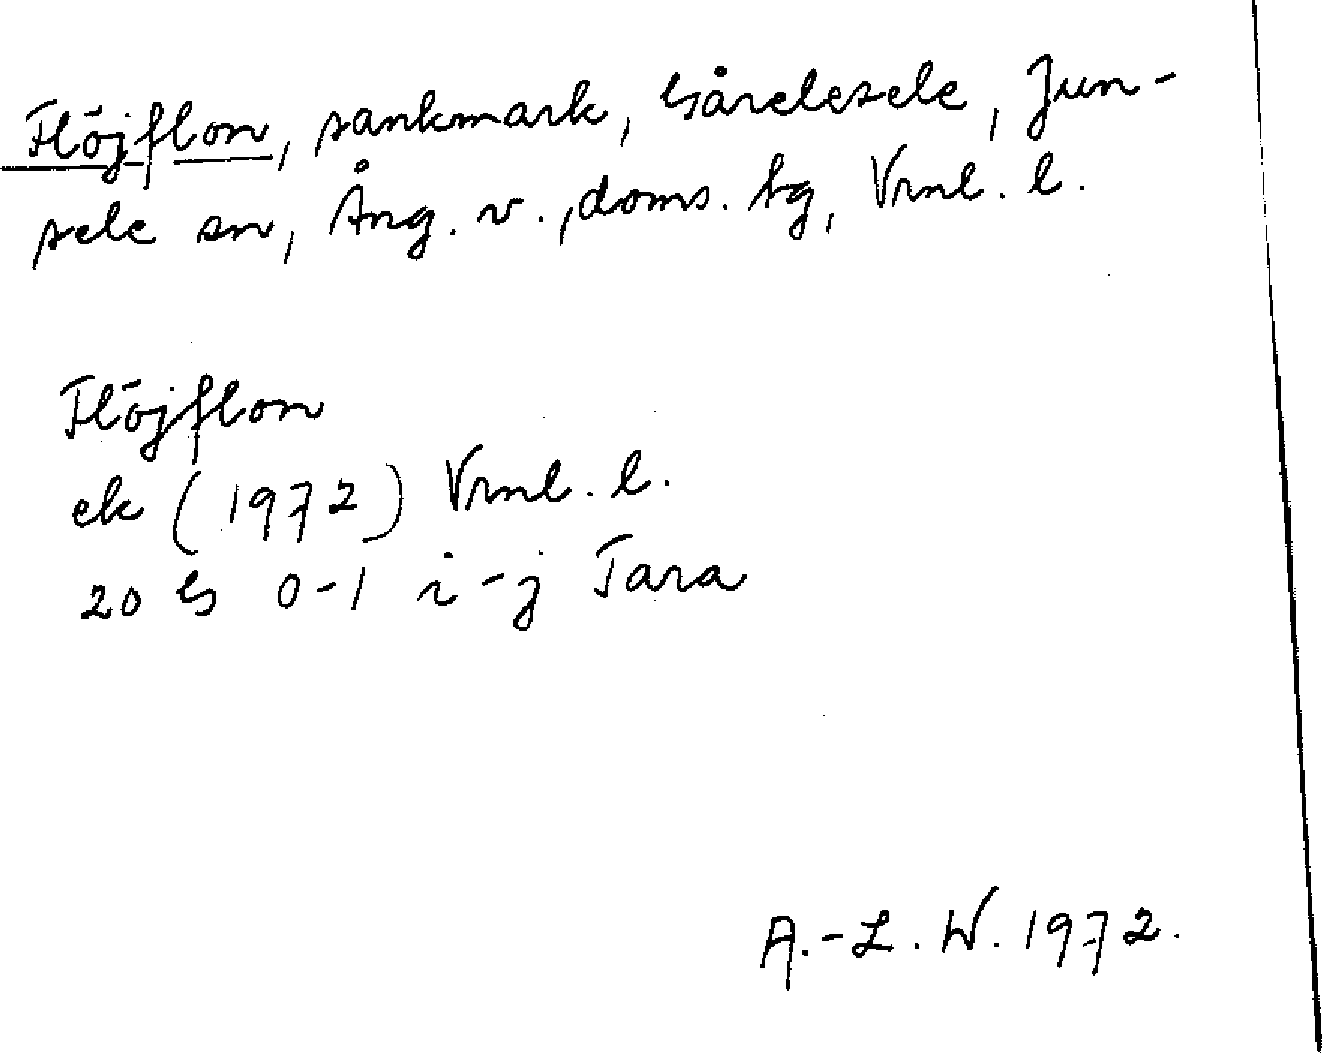 Flöjflon, sankmark, Gårelesele, Jun-
sele sn, Ång. v., doms. tg, Vrml. l.
Flöjflon
ek (1972) Vrml. l.
20 G 0-1 i-j Tara
A.-L. W. 1972.